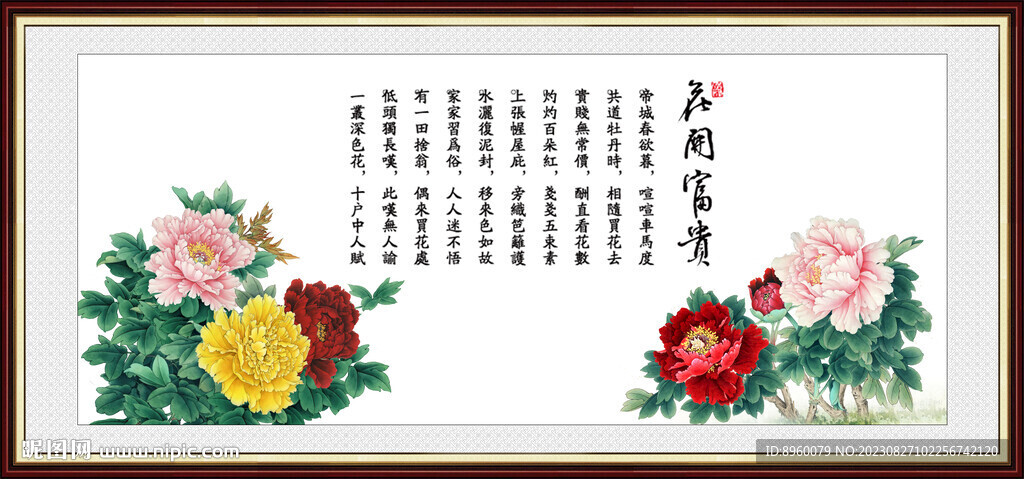 花開富貴
帝城春欲暮，喧喧車馬度
共道牡丹時，相隨買花去
貴賤無常價，酬直看花數
灼灼百朵紅，戔戔五束素
上張幄屋庇，旁織笆籬護
水灑復泥封，移來色如故
家家習為俗，人人迷不悟
有一田捨翁，偶來買花處
低頭獨長嘆，此嘆無人諭
一叢深色花，十户中人賦
昵图网 www.nipic.com
ID:8960079 NO:20230827102256742120